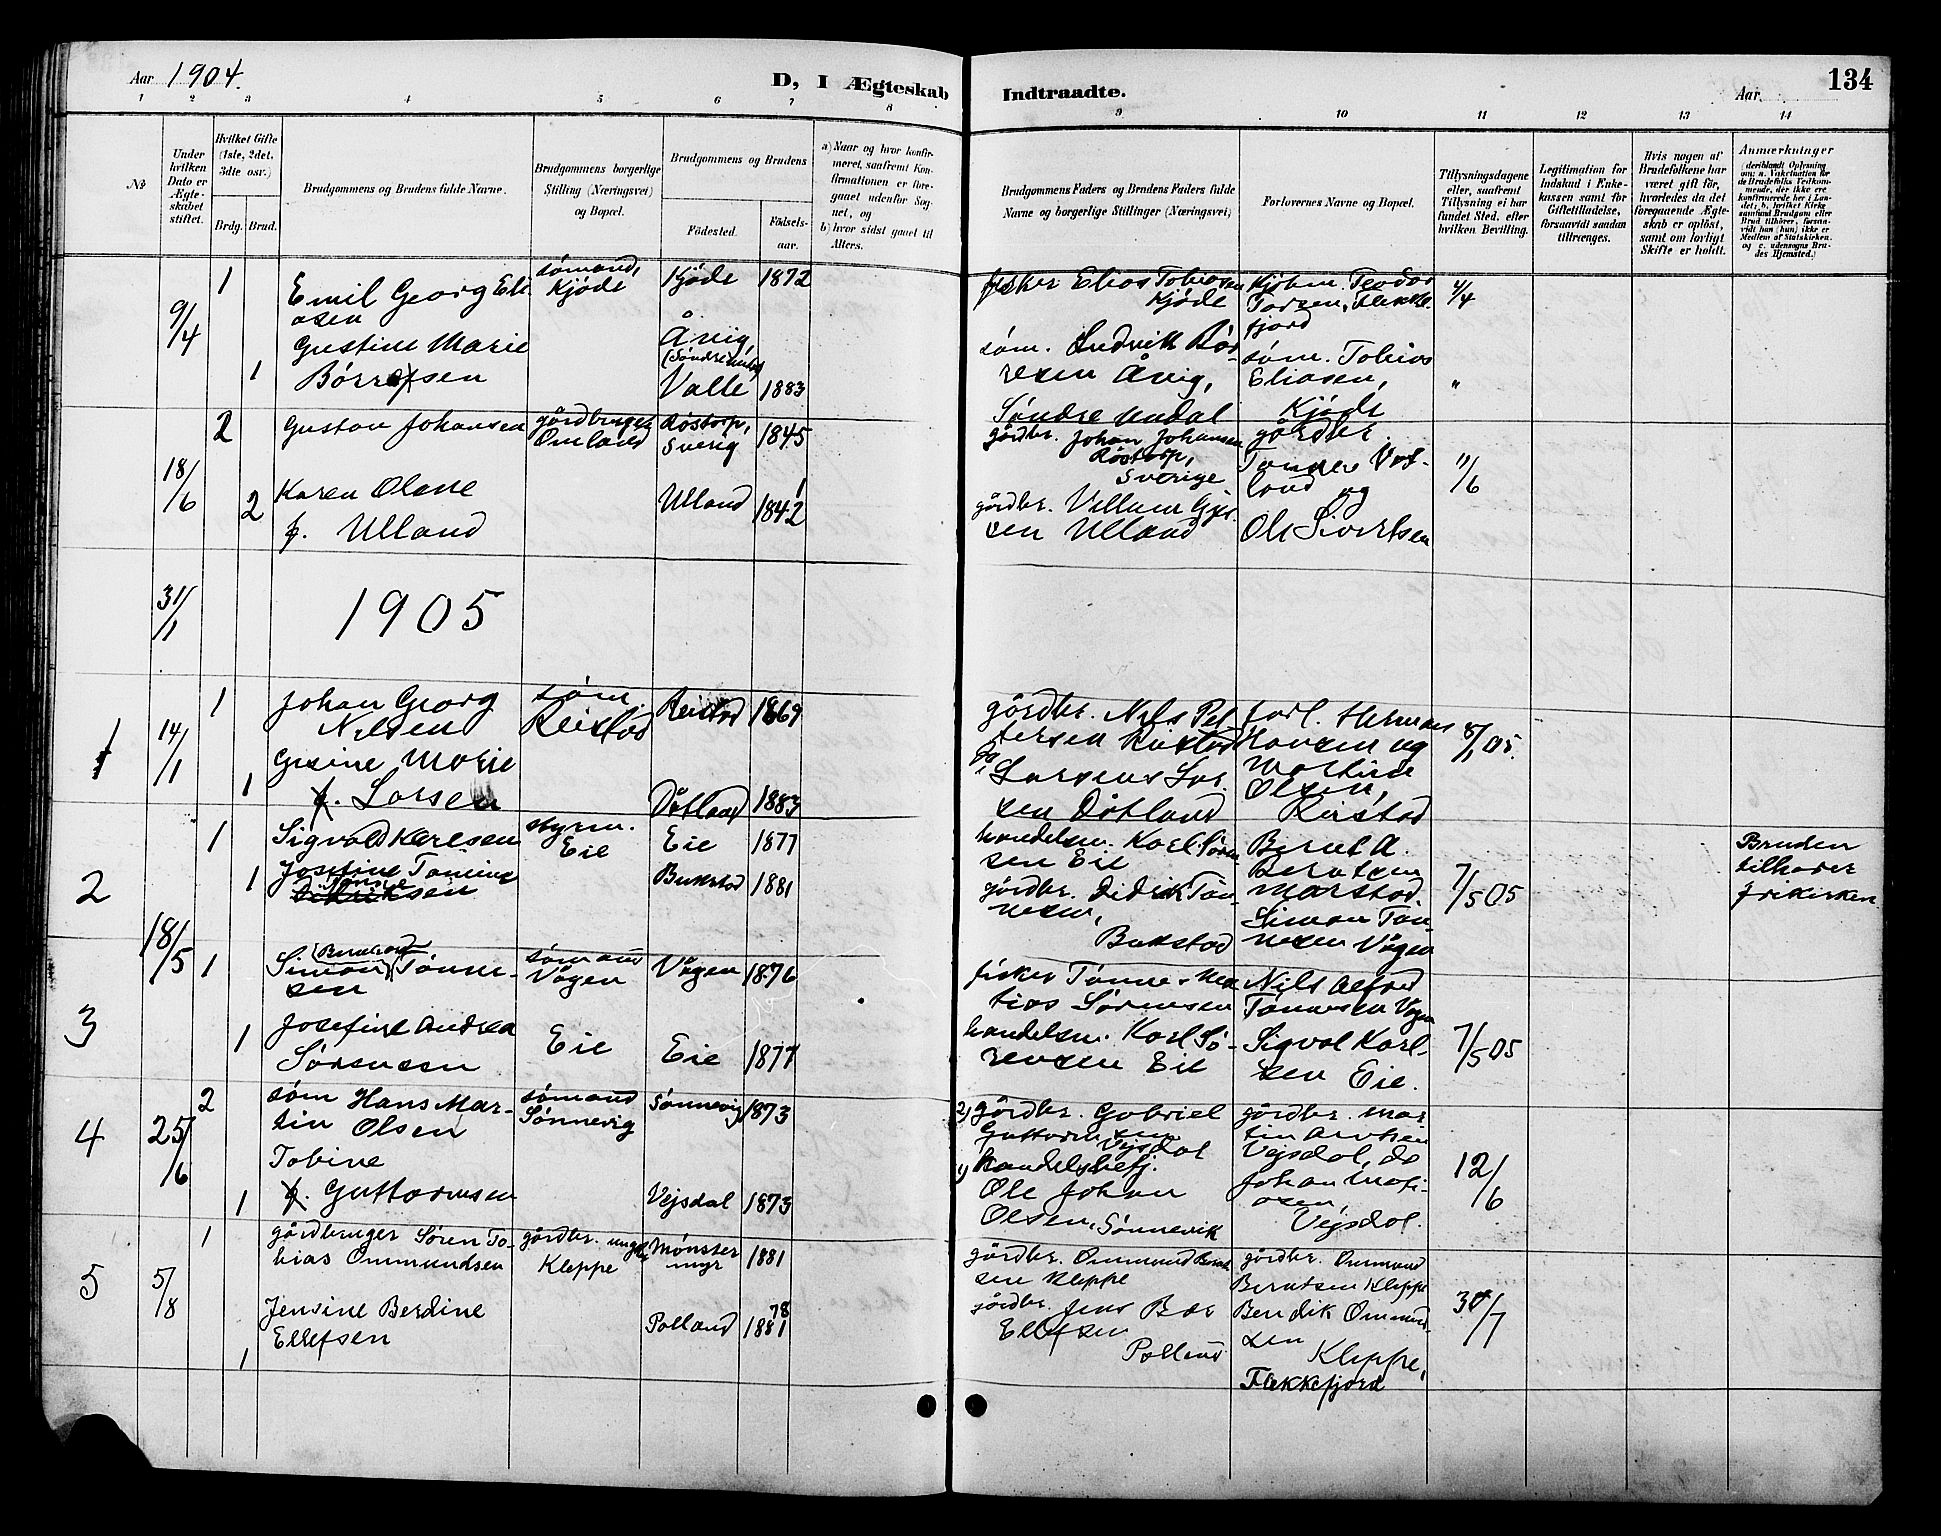 Aar 1904.
D, I Ægteskab Indtraadte.
Aar
134
1 2 3 4 5 6 7 8 9 10 11 12 13 14
№
Under hvilken Dato er Ægteskabet stiftet.
Hvilket Gifte (1ste, 2det, 3die osv.)
Brdg. Brud.
Brudgommens og Brudens fulde Navne.
Brudgommens borgerlige Stilling (Næringsvei) og Bopæl.
Brudgommens og Brudens
Födested.
Födsels-aar.
a) Naar og hvor konfirmeret, saafremt Konfirmationen er foregaaet udenfor Sognet, og
b) hvor sidst gaaet til Alters.
Brudgommens Faders og Brudens Faders fulde Navne og borgerlige Stillinger (Næringsvei)
Forlovernes Navne og Bopæl.
Tillysningsdagene eller, saafremt Tillysning ei har fundet Sted, efter hvilken Bevilling.
Legitimation for Indskud i Enkekassen samt for Giftetilladelse, forsaavidt saadan tiltrænges.
Hvis nogen af Brudefolkene har været gift för, hvorledes da det foregaaende Ægteskab er oplöst, samt om lovligt Skifte er holdt.
Anmærkninger
9/4
1
Emil Georg Eli
asen
sømand,
Kjöde
Kjöde 1872
fisker Elias Tobiasen
Kjöde
Kjöbm. Teodor
Torsen, Flekke-
fjord
4/4
1
Gustine Marie
Börresen
Ånig,
Valle 1883
søm. Ludvik Bör-
resen Ånig,
Söndre Undal
søm. Tobias
Eliasen,
Kjöde
"
18/6
2
Gustav Johansen
gårdbruger
Omland
Röstorp,
Sverig 1845
gårdbr. Johan Johansen
Röstorp,
Sverige
gårdbr.
Tønnes
land og
11/6
2
Karen Olene
f. Ulland
Ulland 1842
gårdbr. Villum
sen Ulland
Ole Sivertsen
31/1
1905
1
14/1
1
Johan Georg
Nilsen
søm.
Reistad
Reistad 1869
gårdbr. Nils Pet
tersen Reistad
forl. Herman
Hansen og
Martin
Olsen,
Reistad
8/1 05.
1
Gusine Marie
Larsen
Dötland 1883
Larsen Dötland
2
18/5
1
Sigvald Karlsen
styrm.
Eie
Eie 1877
handelsm. Karl Sören
sen Eie
Bernt A.
Berntsen
Marstad.
7/5 05
Bruden
tilhører
frikirken
1
Josefine Tomine
Tønne
sen
Bukstad 1881
gårdbr. Didrik Tön-
nesen,
Bukstad
Simon Tön-
nesen Vågen
3
1
Simon (Bernhard) Tønne-
sen
sømand
Vågen
Vågen 1876
fisker Tønnes Ma
tias Sörensen
Nils Alfred
Tønnesen Vågen
7/5 05
1
Josefine Andrea
Sörensen
Eie
Eie 1877
handelsm. Karl Sö-
rensen Eie
Sigval Karl-
sen Eie.
4
25/6
2
søm Hans Mar-
tin Olsen
sømand
Sönnevig
Sönnevig 1873
2) gårdbr. Gabriel
Guttormsen
Vejsdal
gårdbr. Mar
tin Arntsen
Vejsdal, do
12/6
1
Tobine
Guttormsen
Vejsdal 1873
1) handelsbetj.
Ole Johan
Olsen, Sönnevik
Johan Mati-
asen,
Vejsdal.
5
5/8
1
gårdbruger Sören To-
bias Ommundsen
gårdbr.
Kleppe
Mønster
myr 1881
gårdbr. Ommund Bernt
sen Kleppe
gårdbr. Ommund
Berntsen Kleppe
30/7
1
Jensine Berdine
Ellefsen
Polland 1881 78
gårdbr. Jens
Ellefsen
Polland
Bendik Ommund-
sen
Kleppe,
Flekkefjord